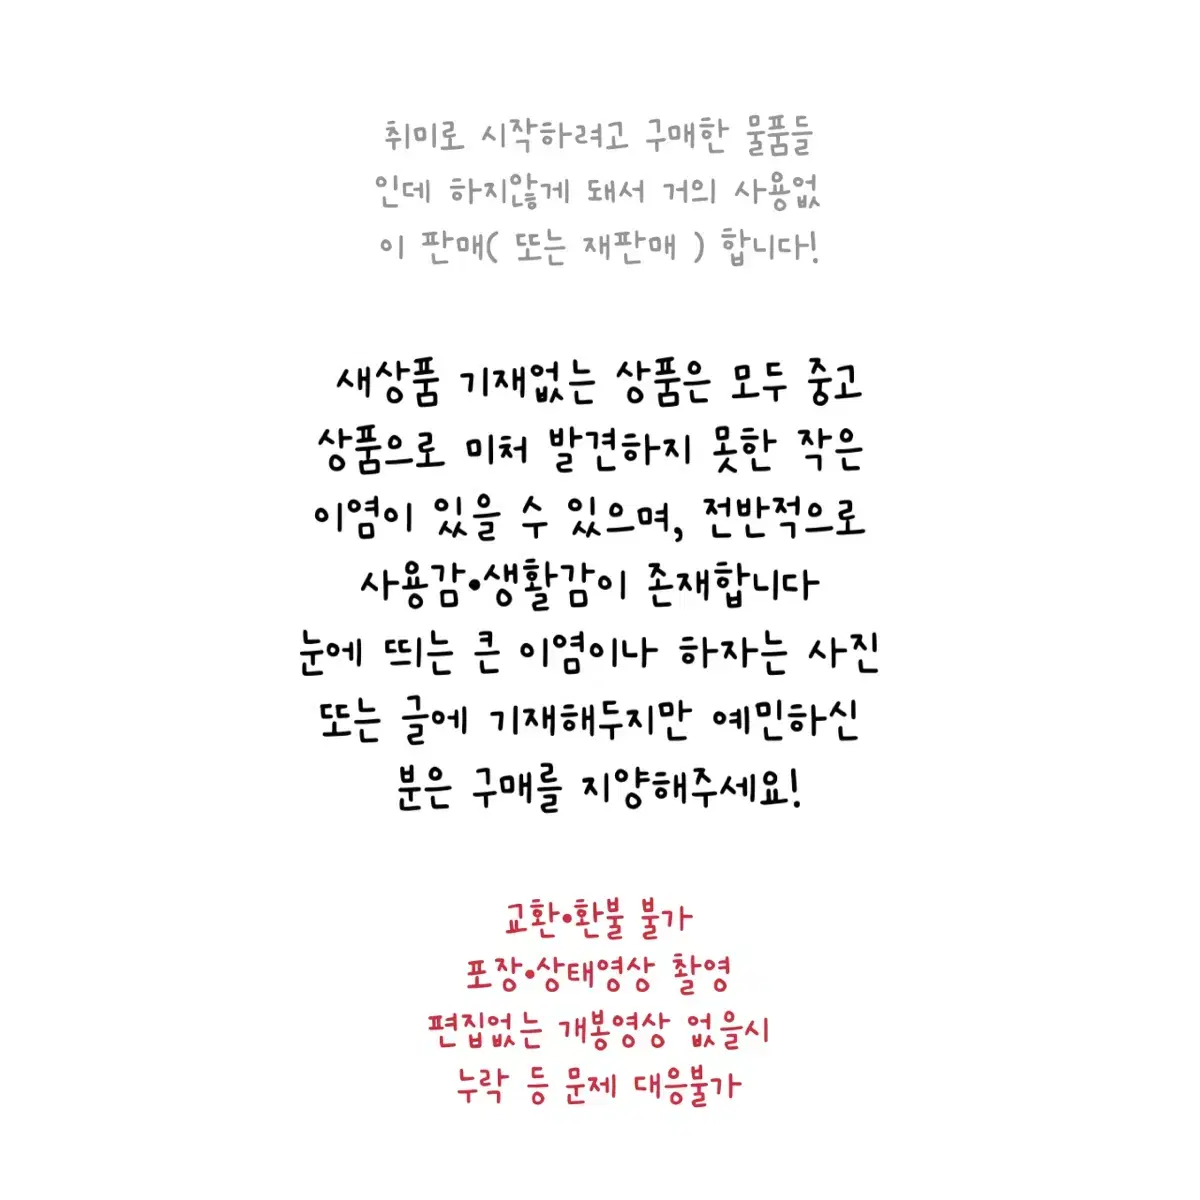 취미로 시작하려고 구매한 물품들
인데 하지않게 돼서 거의 사용없
이 판매( 또는 재판매 ) 합니다!
새상품 기재없는 상품은 모두 중고
상품으로 미처 발견하지 못한 작은
이염이 있을 수 있으며, 전반적으로
사용감•생활감이 존재합니다
눈에 띄는 큰 이염이나 하자는 사진
또는 글에 기재해두지만 예민하신
분은 구매를 지양해주세요!
교환•환불 불가
포장•상태영상 촬영
편집없는 개봉영상 없을시
누락 등 문제 대응불가